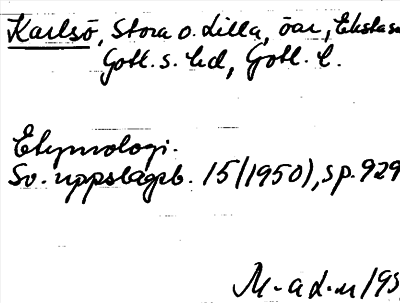 Karlsö, Stora o. Lilla, öar, Eksta s
Gotl. s. hd, Gotl. l.
Etymologi.
Sv. uppslagsb. 15 (1950), sp. 929
M-a d-n /95